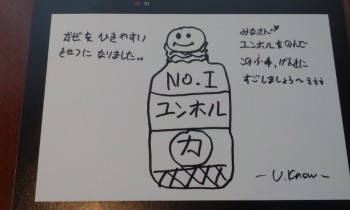 かぜを ひきやすい
きせつに なりました。。
No.1
ユンホル
力
みなさん〜
ユンホルをのんで
この冬、げんきに
すごしましょう〜
- U.know -